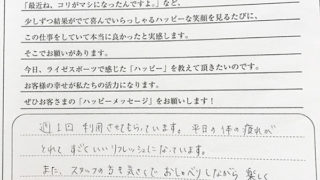 「最近ね、コリがマシになったんですよ。」など、
少しずつ結果がでて喜んでいらっしゃるハッピーな笑顔を見るたびに、
この仕事をしていて本当に良かったと実感します。
そこでお願いがあります。
今日、ライゼスポーツで感じた「ハッピー」を教えて頂きたいのです。
お客様の幸せが私たちの活力になります。
ぜひお客さまの「ハッピーメッセージ」をお願いします!
週1回 利用させてもらっています。平日の体の疲れが
とれて すごくいいリフレッシュになっています。
また、スタッフの方も気さくで おしゃべりしながら 楽しく